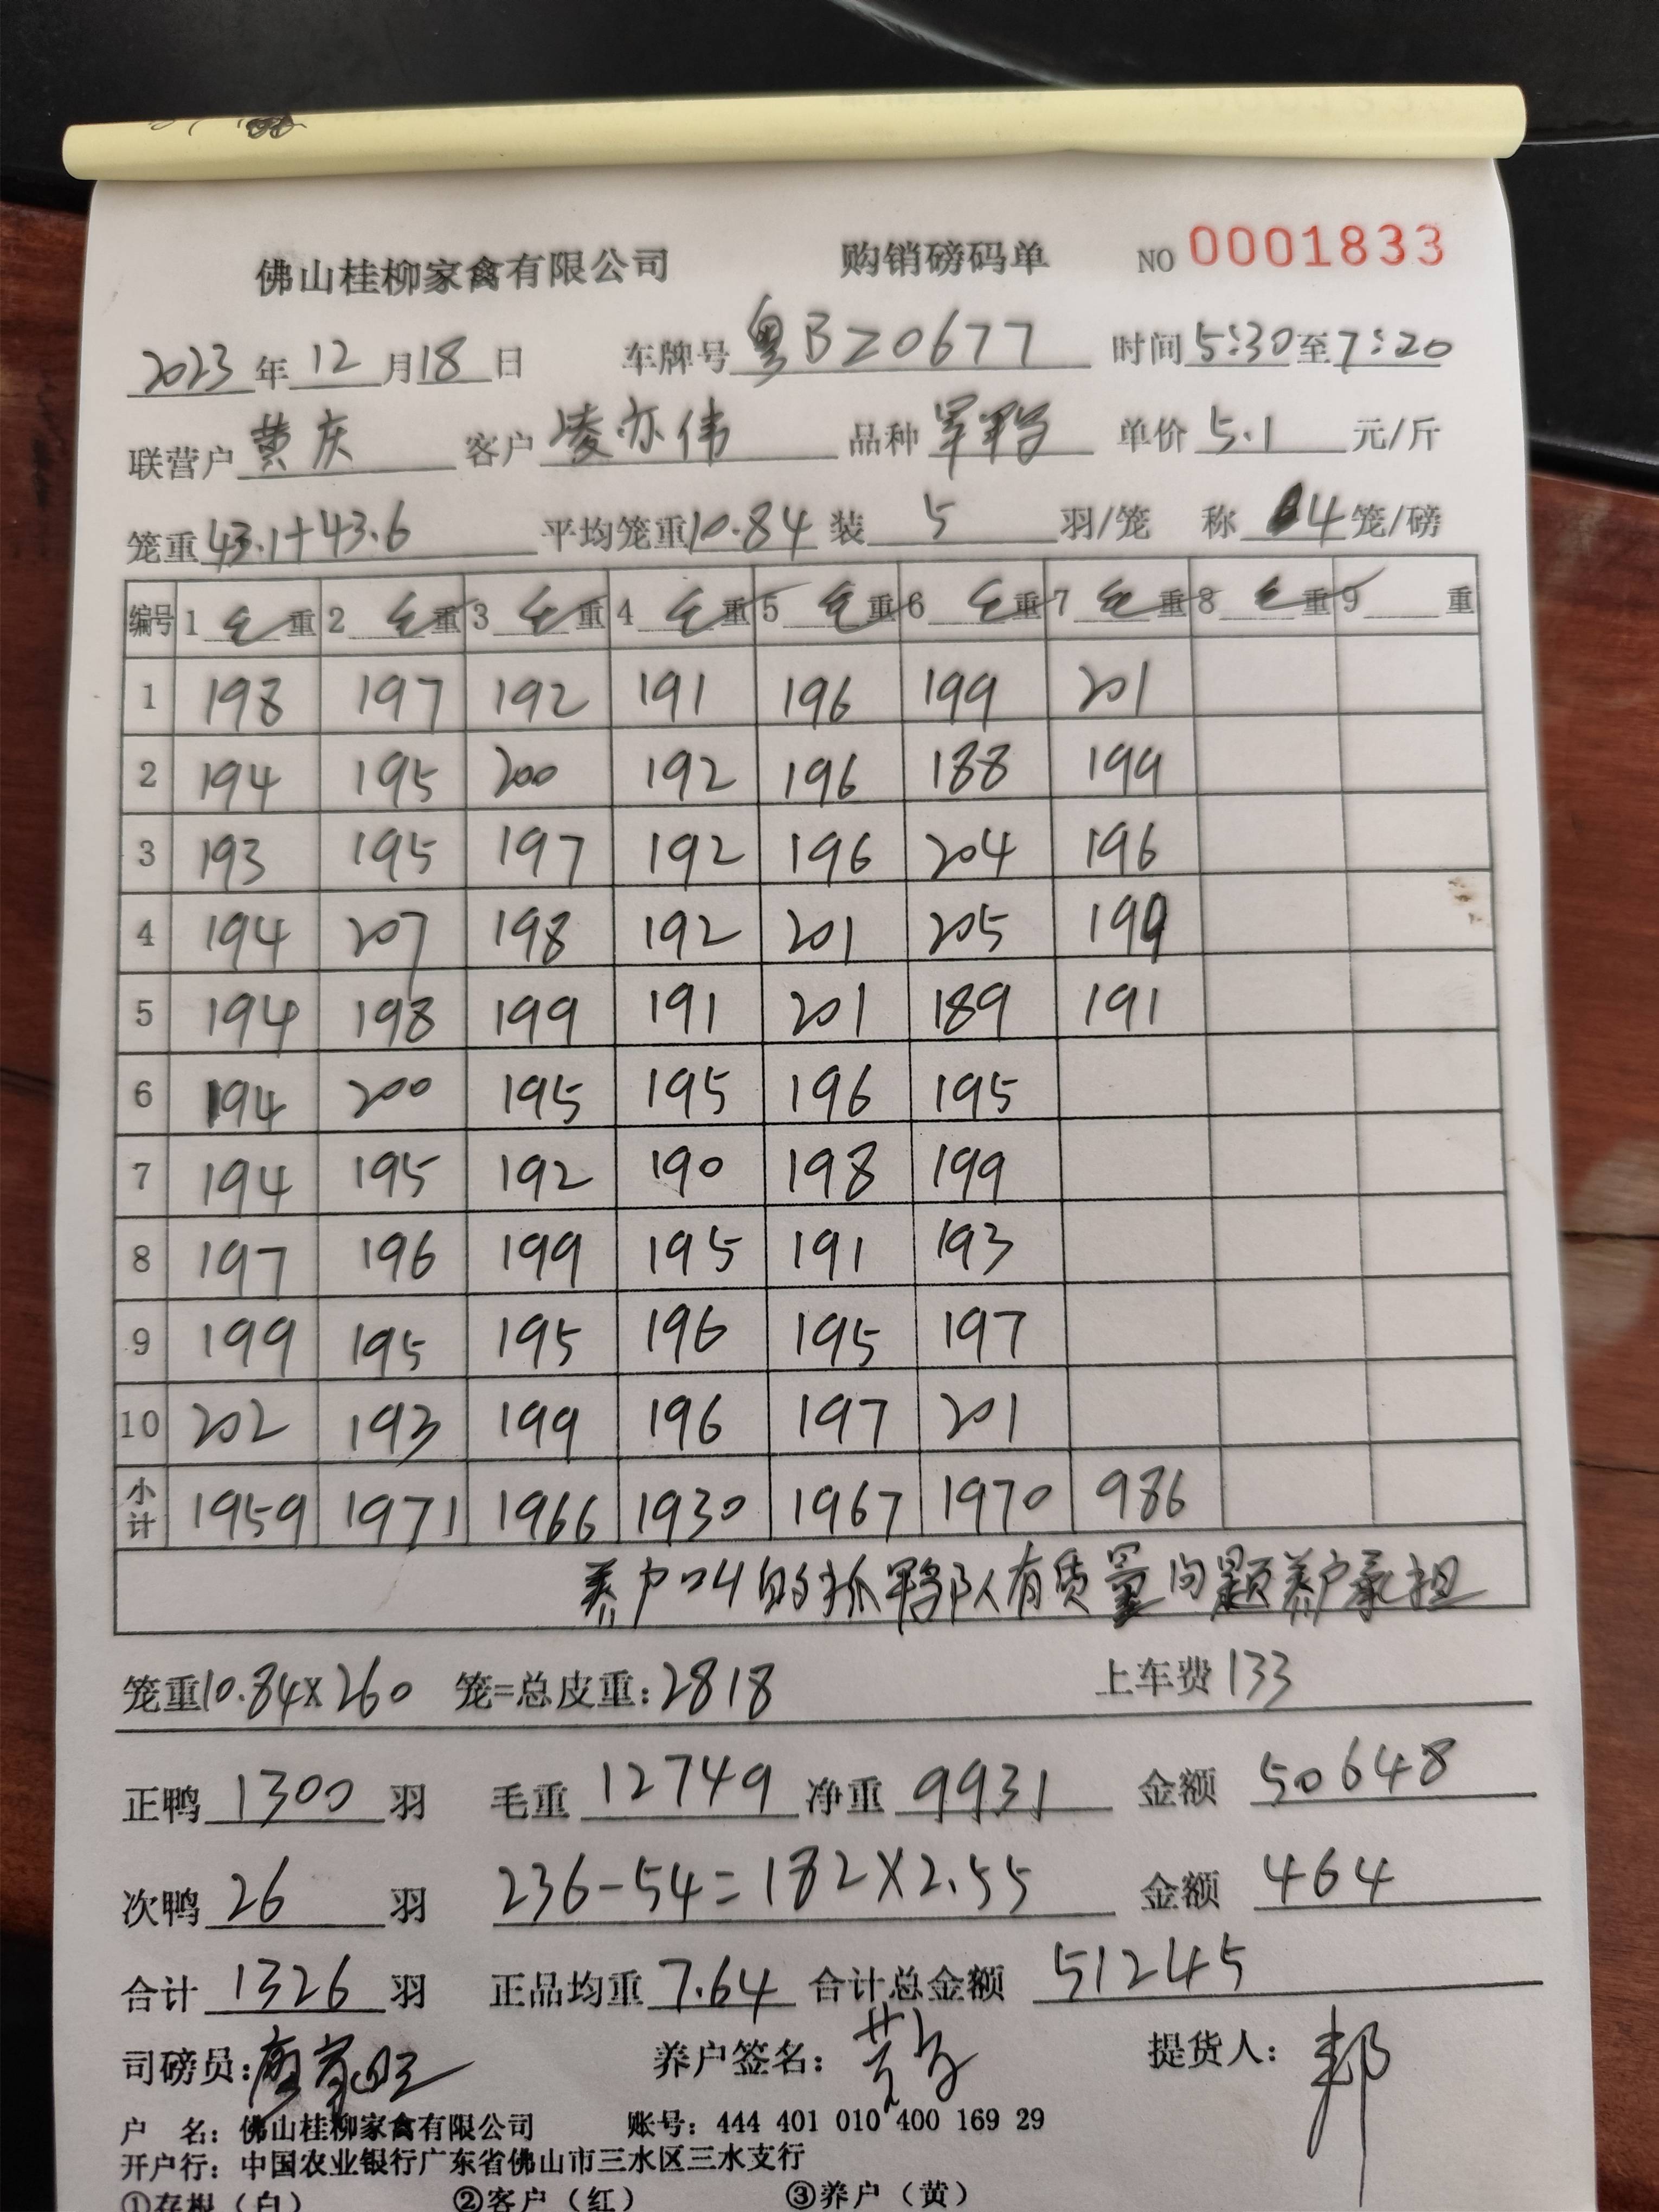 佛山桂柳家禽有限公司 购销磅码单 NO 0001833
2023年12月18日 车牌号 粤BZ0677 时间5:30至7:20
联营户 黄庆 客户 凌亦伟 品种 单价 5.1 元/斤
笼重43.1+43.6 平均笼重10.84 装 5 羽/笼 称 4笼/磅
编号 1 毛重 2 毛重 3 毛重 4 毛重 5 毛重 6 毛重 7 毛重 8 毛重 9 重
1 198 197 192 191 196 199 201
2 194 195 200 192 196 188 199
3 193 195 197 192 196 204 196
4 194 207 198 192 201 205 199
5 194 198 199 191 201 189 191
6 194 200 195 195 196 195
7 194 195 192 190 198 199
8 197 196 199 195 191 193
9 199 195 195 196 195 197
10 202 193 199 196 197 201
小计 1959 1971 1966 1930 1967 1970 986
养户叫的抓鸭队有质量问题养户承担
笼重10.84×260 笼=总皮重:2818 上车费133
正鸭 1300 羽 毛重 12749 净重 9931 金额 50648
次鸭 26 羽 236-54=182×2.55 金额 464
合计 1326 羽 正品均重 7.64 合计总金额 51245
司磅员: 养户签名: 提货人: 邦
户 名: 佛山桂柳家禽有限公司 账号: 444 401 010 400 169 29
开户行: 中国农业银行广东省佛山市三水区三水支行
①存根（白） ②客户（红） ③养户（黄）